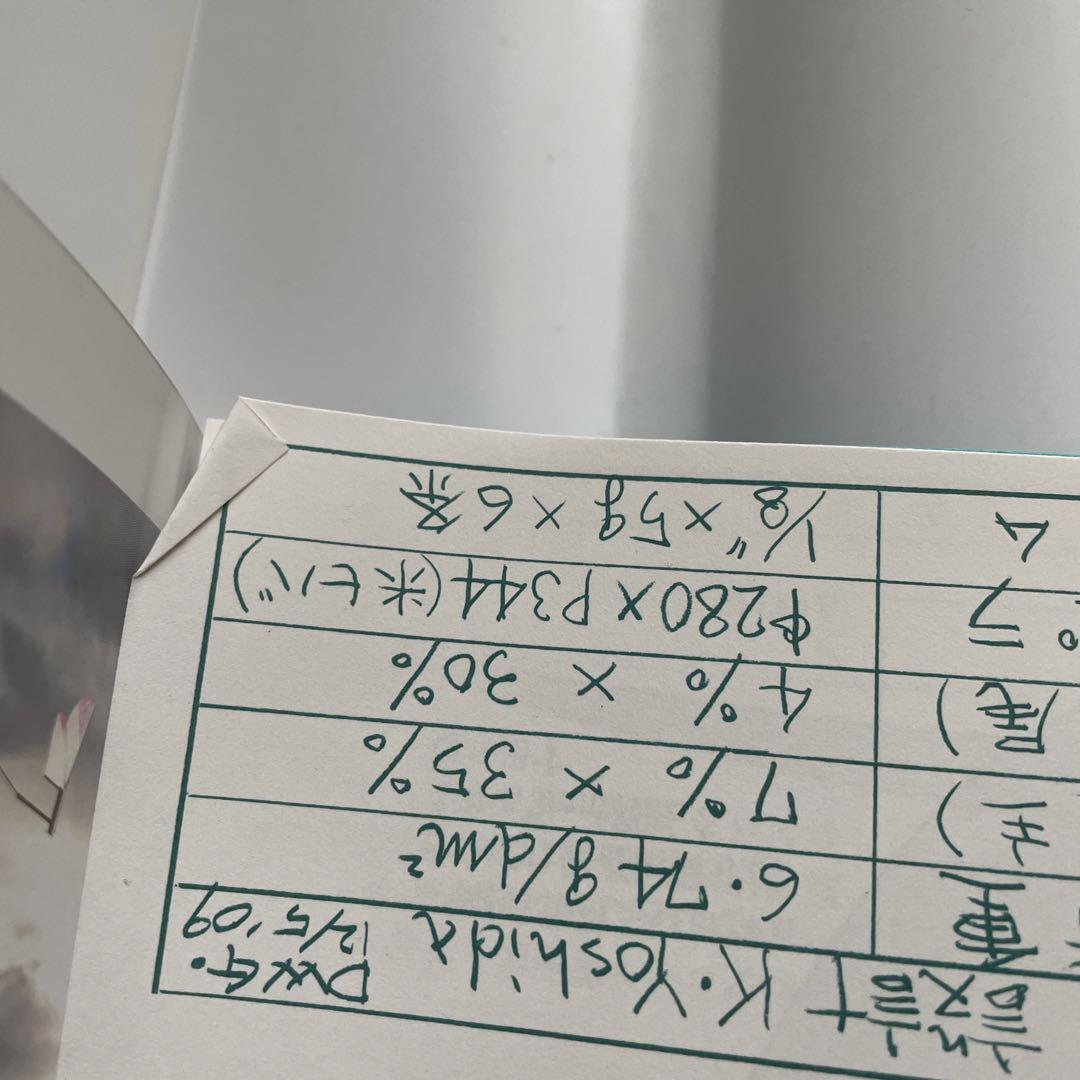 設計 K・Yoshida DWG. 12/5 '09
重 6・74 g/dm²
主) 7% × 35%
尾) 4% × 30%
ラ φ280×P344(米ヒバ)
ム 1/8"×5g×6条